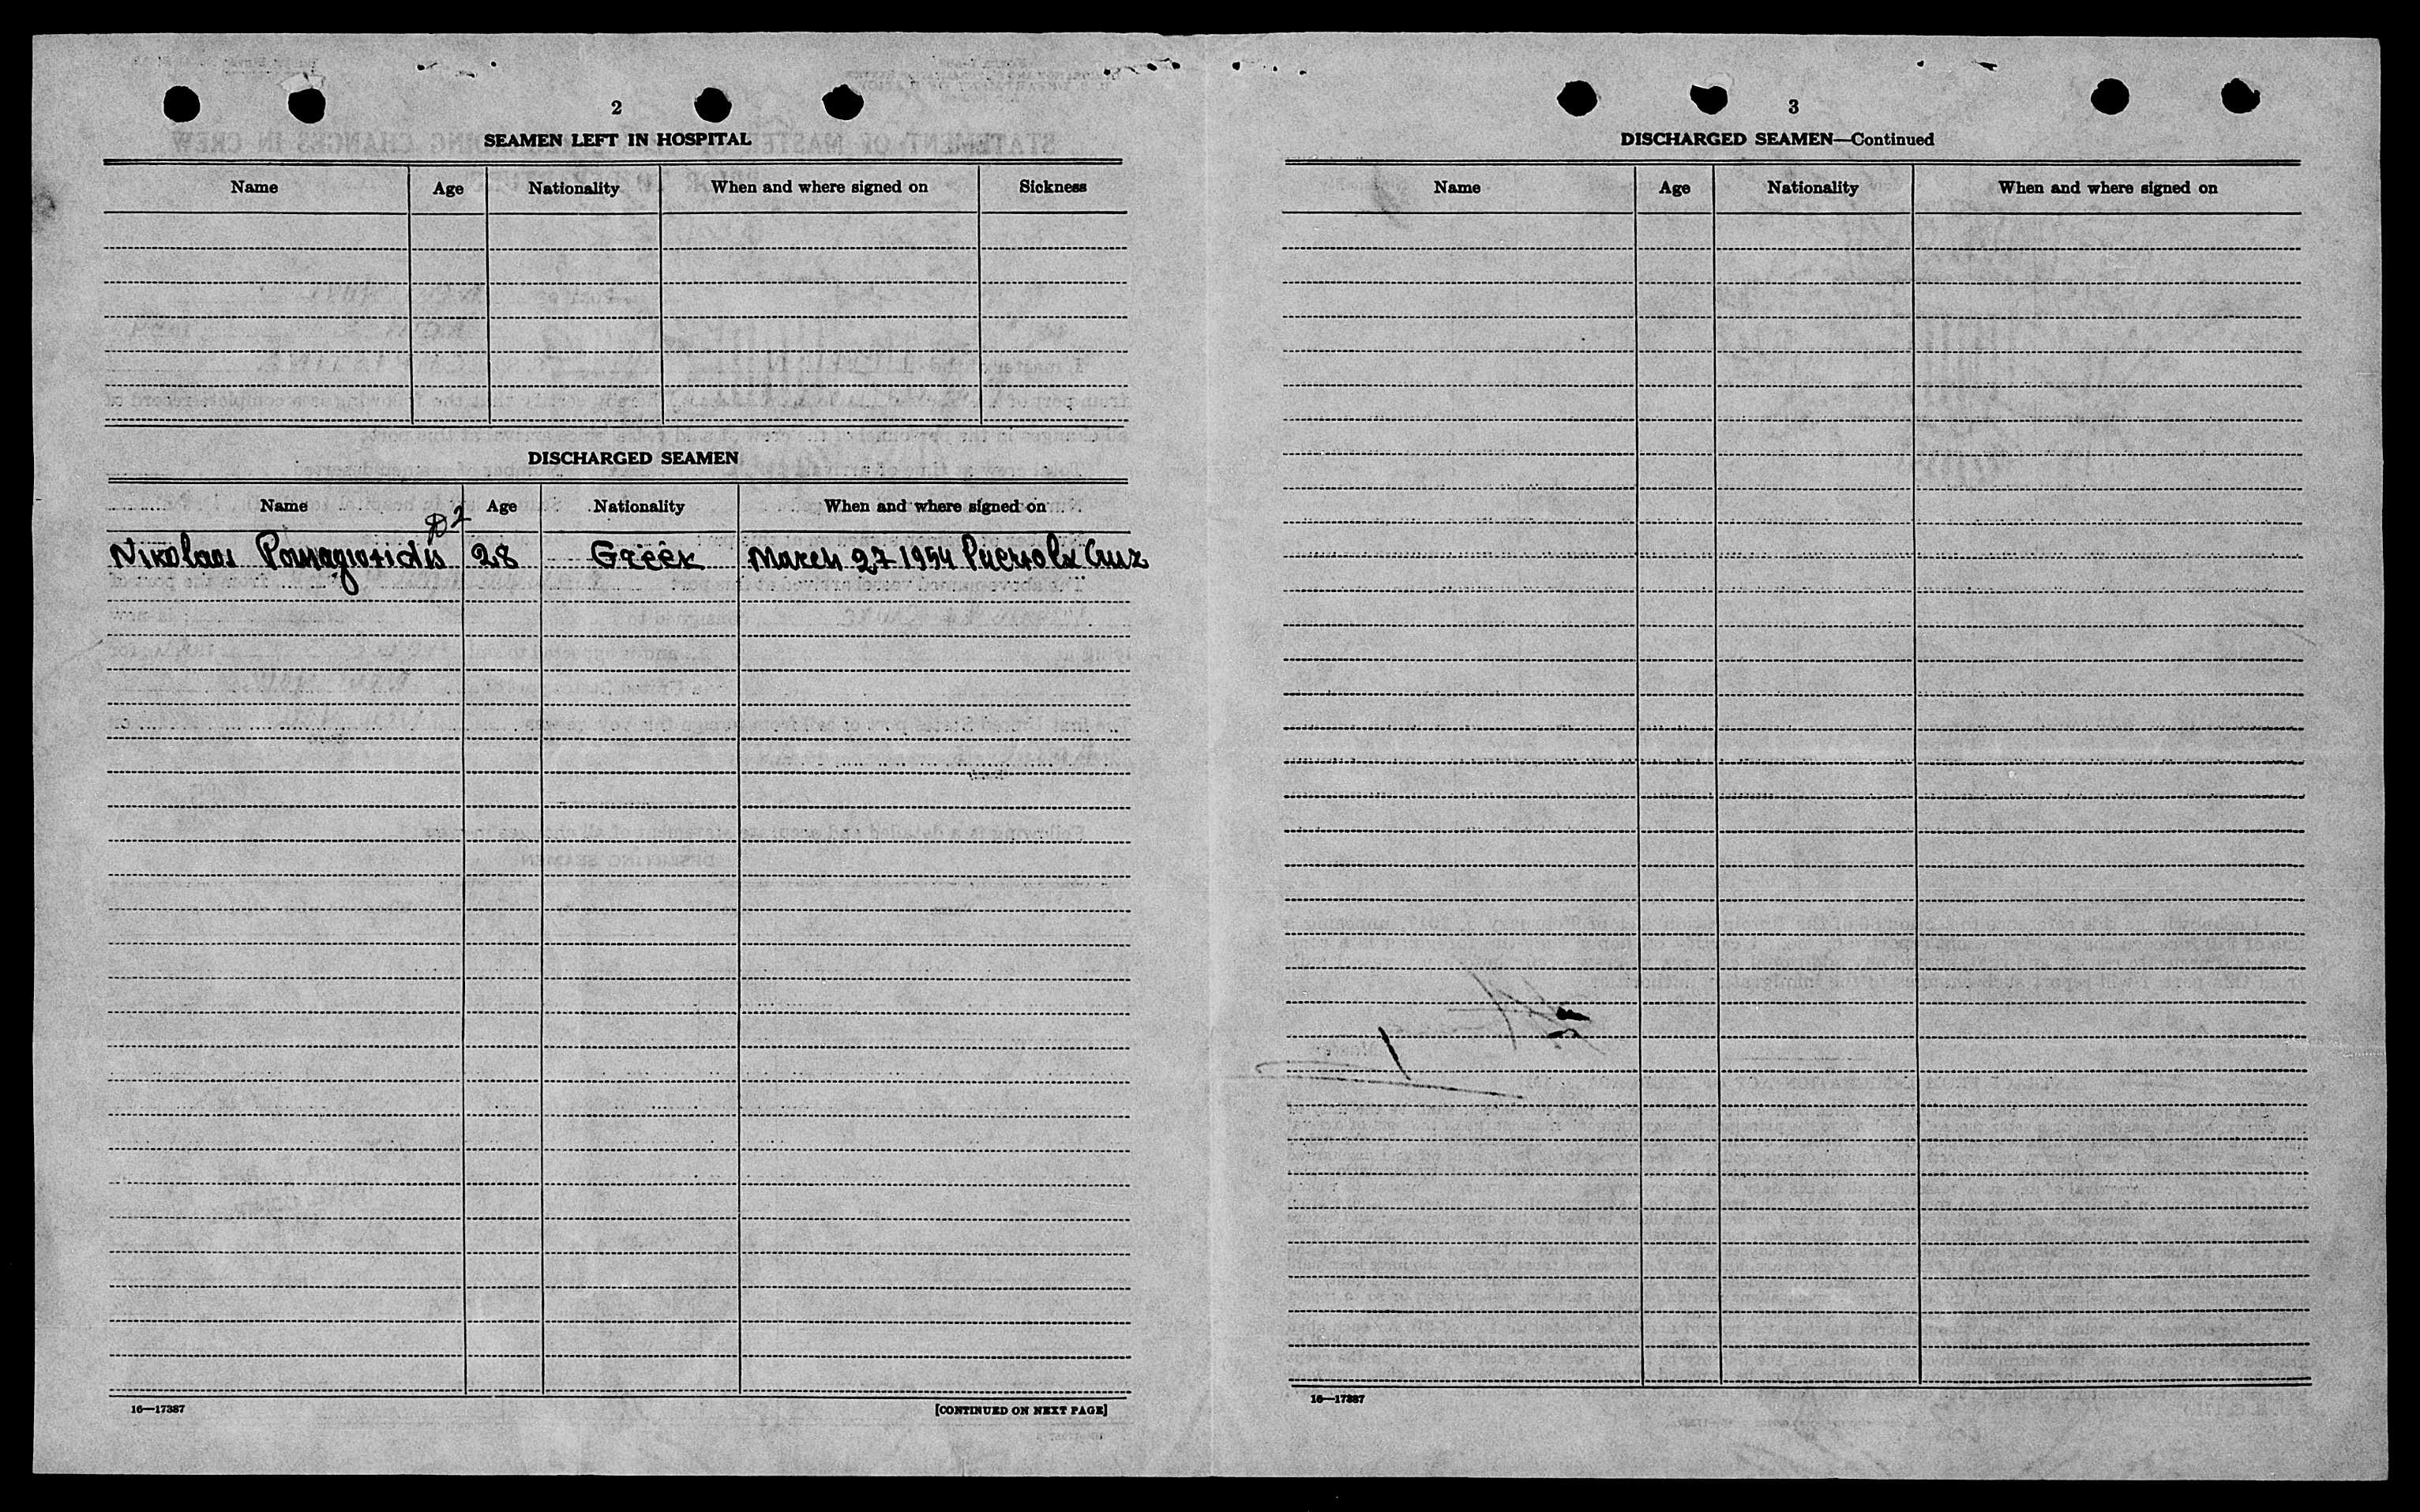 2
SEAMEN LEFT IN HOSPITAL
Name Age Nationality When and where signed on Sickness
DISCHARGED SEAMEN
Name Age Nationality When and where signed on
Nikolaos Panagiotidis 28 Greek March 27 1954 Puerto la Cruz
16—17387
[CONTINUED ON NEXT PAGE]
3
DISCHARGED SEAMEN—Continued
Name Age Nationality When and where signed on
16—17387